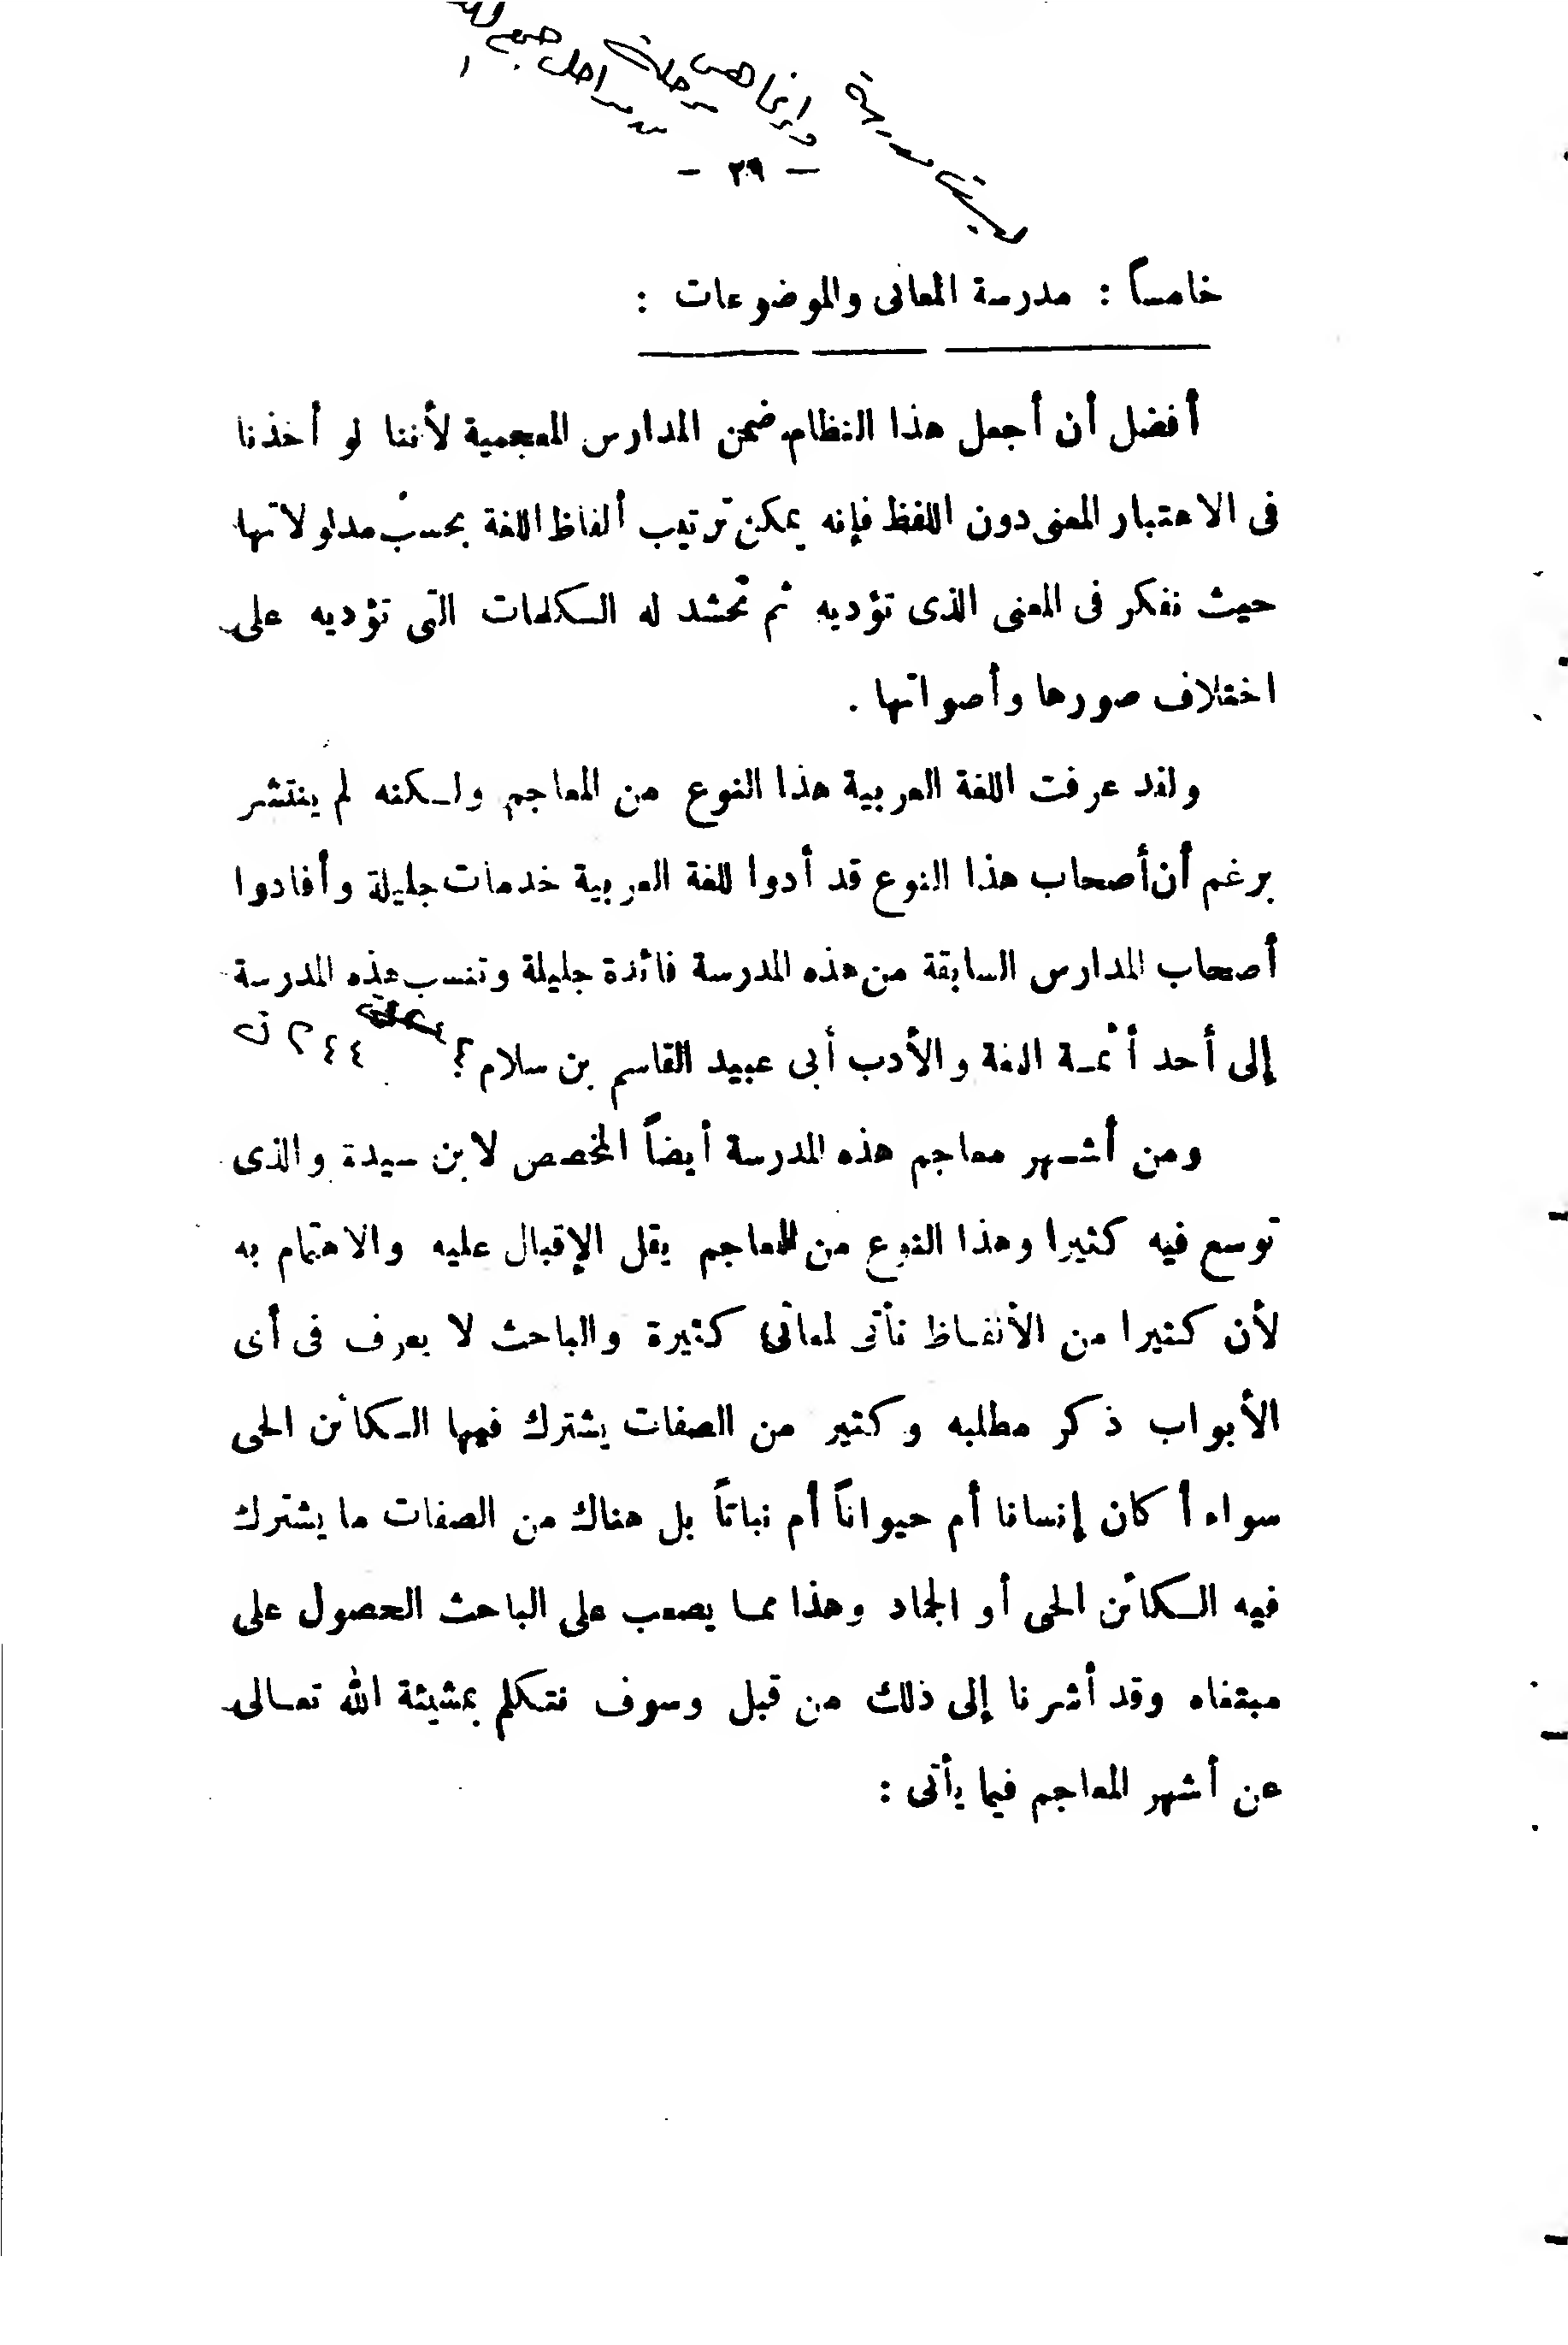 - ٢٩ -
خامساً : مدرسة المعانى والموضوعات :
أفضل أن أجعل هذا النظام ضمن المدارس المعجمية لأننا لو أخذنا
فى الاعتبار المعنى دون اللفظ فإنه يمكن ترتيب ألفاظ اللغة بحسب مدلولاتها
حيث نفكر فى المعنى الذى تؤديه ثم تحشد له الكلمات التى تؤديه على
اختلاف صورها وأصواتها .
ولقد عرفت اللغة العربية هذا النوع من المعاجم ولكنه لم ينتشر
برغم أن أصحاب هذا النوع قد أدوا للغة العربية خدمات جليلة وأفادوا
أصحاب المدارس السابقة من هذه المدرسة فائدة جليلة وتنسب هذه المدرسة
إلى أحد أئمة اللغة والأدب أبى عبيد القاسم بن سلام ؟ ٢٢٤
ومن أشهر معاجم هذه المدرسة أيضاً المخصص لابن سيدة والذى
توسع فيه كثيرا وهذا النوع من المعاجم يقل الإقبال عليه والاهتمام به
لأن كثيرا من الألفاظ تأتى لمعانى كثيرة والباحث لا يعرف فى أى
الأبواب ذكر مطلبه وكثير من الصفات يشترك فيها الكائن الحى
سواء أكان إنسانا أم حيواناً أم نباتاً بل هناك من الصفات ما يشترك
فيه الكائن الحى أو الجماد وهذا مما يصعب على الباحث الحصول على
مبتغاه وقد أشرنا إلى ذلك من قبل وسوف نتكلم بمشيئة الله تعالى
عن أشهر المعاجم فيما يأتى :